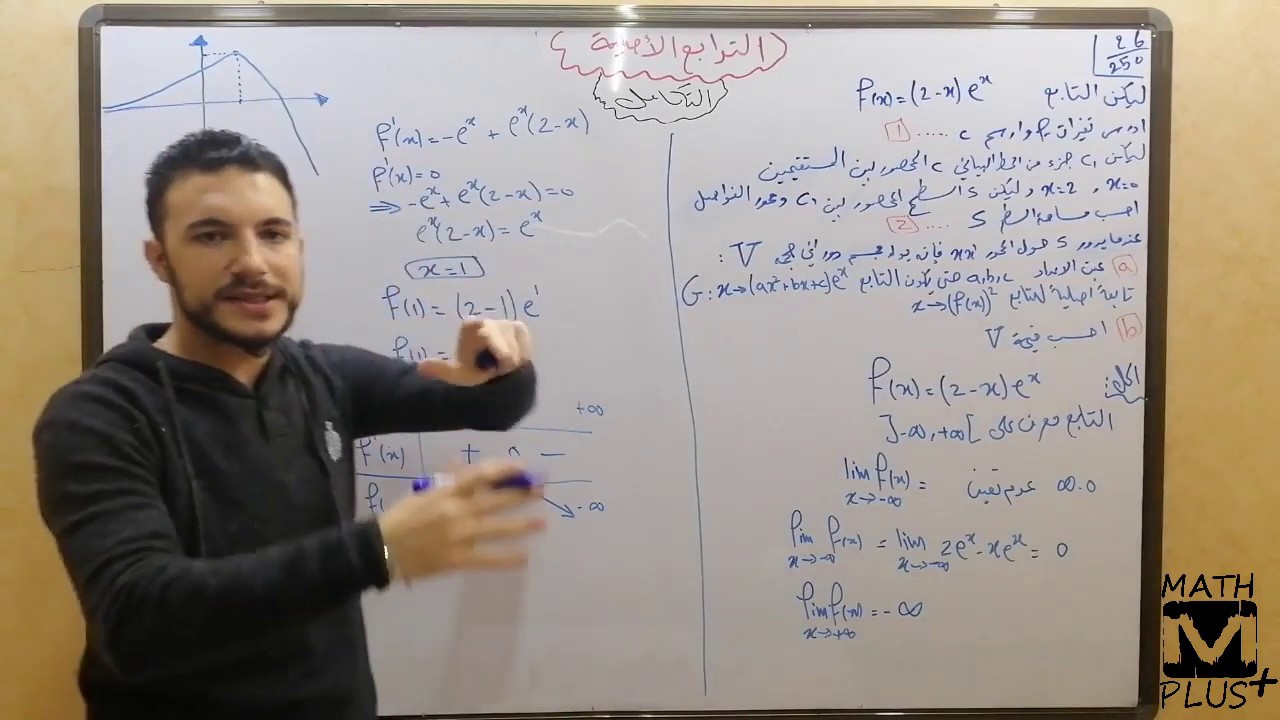 التوابع الأصلية
التكامل
26
250
ليكن التابع f(x)=(2-x)e^x
ادرس تغيرات f وارسم c ..... 1
ليكن c₁ جزء من الخط البياني c المحصور بين المستقيمين
x=0 , x=2 وليكن S السطح المحصور بين c₁ ومحور الفواصل
احسب مساحة السطح S .... 2
عندما يدور S حول المحور xx' فإنه يولد مجسم دوراني حجمه V :
a عين الأعداد a,b,c حتى يكون التابع G: x→(ax²+bx+c)e^x
تابعاً أصلياً للتابع x→(f(x))²
b احسب قيمة V
الحل:
f(x)=(2-x)e^x
التابع معرف على ]-∞,+∞[
lim f(x) = عدم تعيين ∞.0
x→-∞
lim f(x) = lim 2e^x-xe^x = 0
x→-∞ x→-∞
lim f(x) = -∞
x→+∞
f'(x)=-e^x + e^x(2-x)
f'(x)=0
⇒ -e^x+e^x(2-x)=0
e^x(2-x)=e^x
x=1
f(1)=(2-1)e^1
f(1)=
+∞
f'(x) + 0 -
-∞
MATH
M
PLUS+